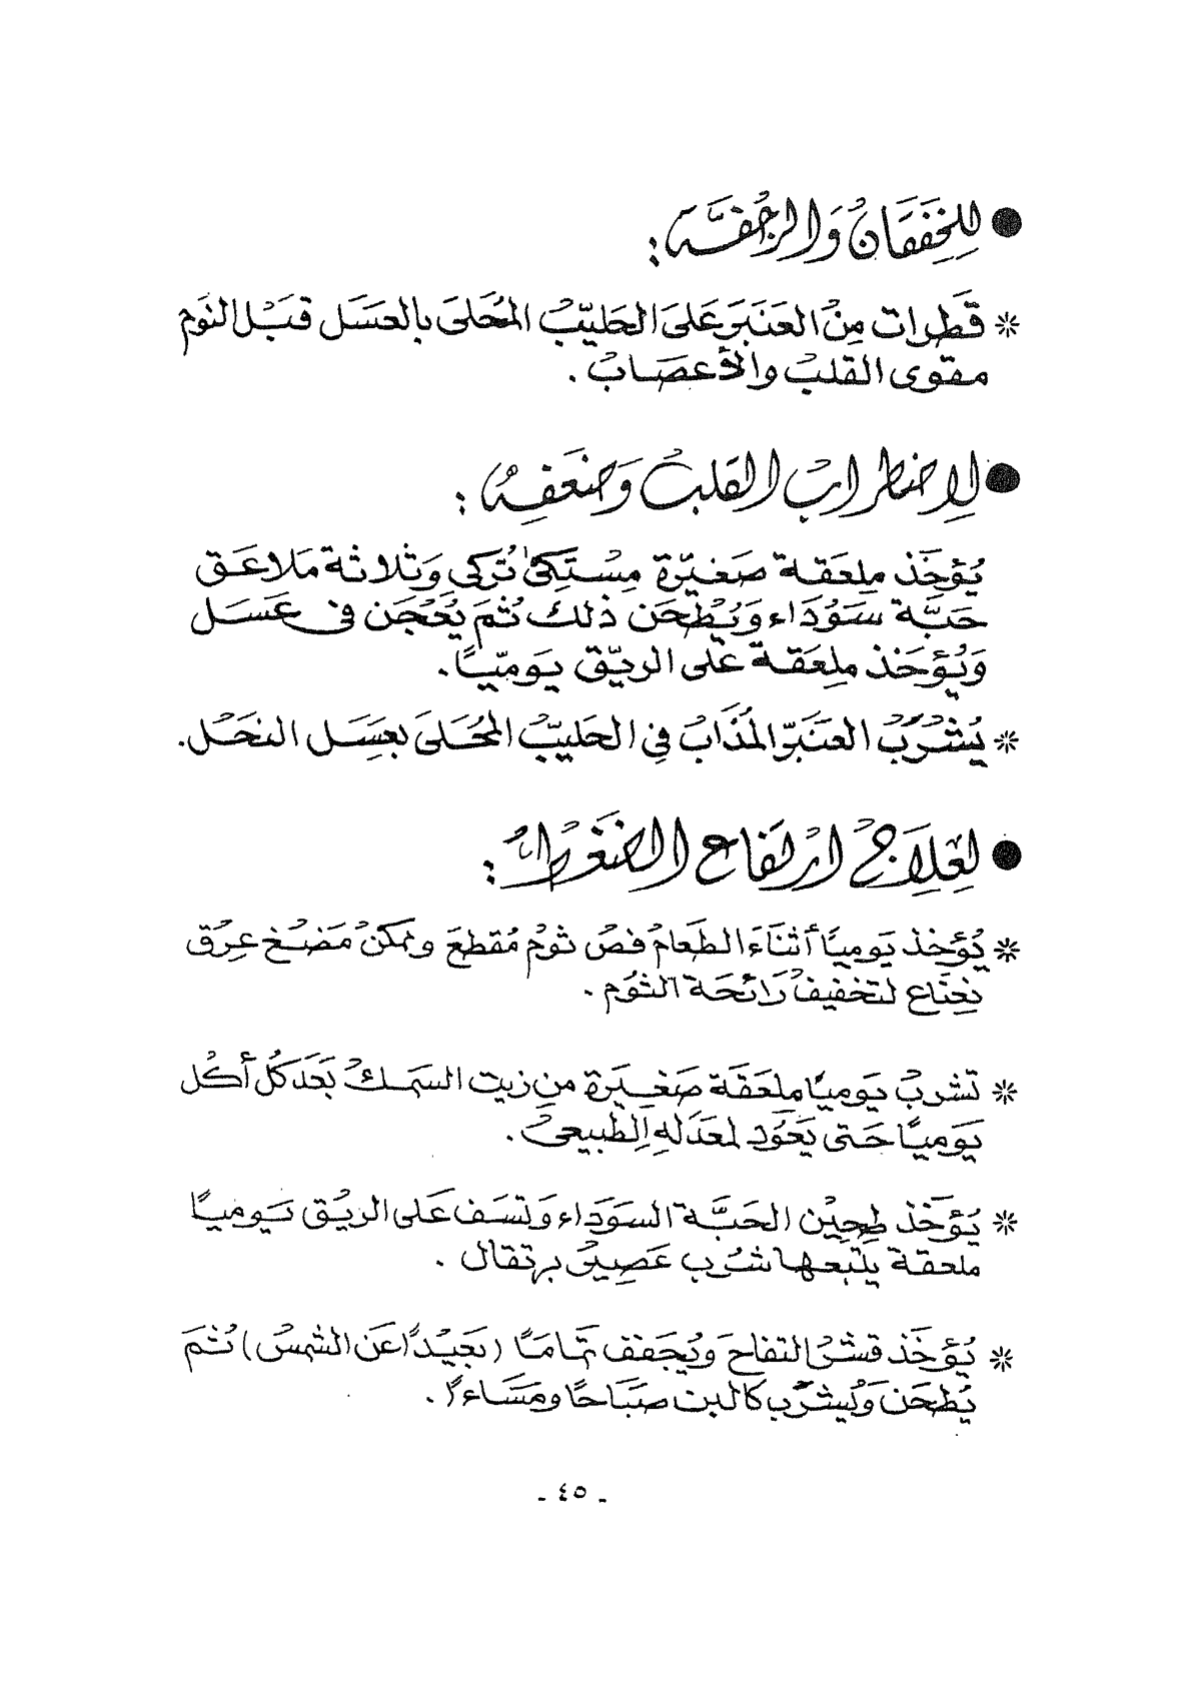 ● للخفقان والرجفة :
* قطرات من العنبر على الحليب المحلى بالعسل قبل النوم
مقوى القلب والأعصاب .
● لاضطراب القلب وضعفه :
يؤخذ ملعقة صغيرة مستكى تركى وثلاثة ملاعق
حبة سوداء ويطحن ذلك ثم يعجن فى عسل
ويؤخذ ملعقة على الريق يوميًا .
* يشرب العنبر المذاب في الحليب المحلى بعسل النحل .
● لعلاج ارتفاع الضغط :
* يؤخذ يوميًا أثناء الطعام فص ثوم مقطع ويمكن مضغ عرق
نعناع لتخفيف رائحة الثوم .
* تشرب يوميًا ملعقة صغيرة من زيت السمك بعد كل أكل
يوميًا حتى يعود لمعدله الطبيعى .
* يؤخذ طحين الحبة السوداء وتسف على الريق يوميًا
ملعقة يتبعها شرب عصير برتقال .
* يؤخذ قشر التفاح ويجفف تمامًا ( بعيدًا عن الشمس ) ثم
يطحن ويشرب كالبن صباحًا ومساءً .
- ٤٥ -